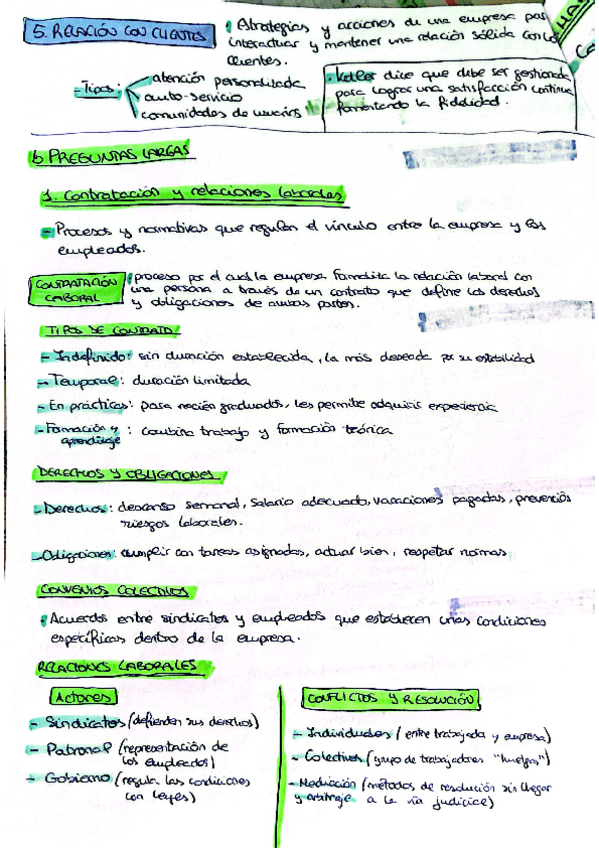 5. RELACIÓN CON CLIENTES
Estrategias y acciones de una empresa para
interactuar y mantener una relación sólida con los
clientes.
- Tipos:
atención personalizada
auto-servicio
comunidades de usuarios
Kotler dice que debe ser gestionada
para lograr una satisfacción continua
fomentando la fidelidad.
b PREGUNTAS LARGAS
1. Contratación y relaciones laborales
- Procesos y normativas que regulan el vínculo entre la empresa y los
empleados.
CONTRATACIÓN
LABORAL
proceso por el cual la empresa formaliza la relación laboral con
una persona a través de un contrato que define los derechos
y obligaciones de ambas partes.
TIPOS DE CONTRATO
- Indefinido: sin duración establecida, la más deseada por su estabilidad
- Temporal: duración limitada
- En prácticas: para recién graduados, les permite adquirir experiencia
- Formación y
aprendizaje : combina trabajo y formación teórica
DERECHOS Y OBLIGACIONES
- Derechos: descanso semanal, salario adecuado, vacaciones pagadas, prevención
riesgos laborales.
- Obligaciones: cumplir con tareas asignadas, actuar bien, respetar normas
CONVENIOS COLECTIVOS
Acuerdos entre sindicatos y empleados que establecen unas condiciones
específicas dentro de la empresa.
RELACIONES LABORALES
Actores
- Sindicatos (defienden sus derechos)
- Patronal (representación de
los empleados)
- Gobierno (regula las condiciones
con leyes)
CONFLICTOS Y RESOLUCIÓN
- Individuales (entre trabajada y empresa)
- Colectivos (grupo de trabajadores "huelgas")
- Mediación (métodos de resolución sin llegar
y arbitraje a la vía judicial)